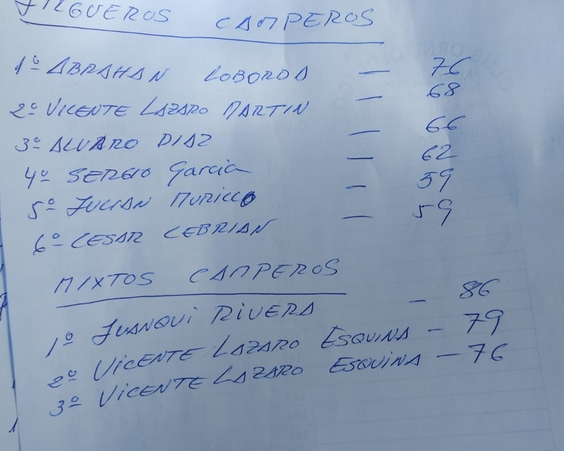 JILGUEROS CAMPEROS
1º ABRAHAN LOBORDA — 76
2º VICENTE LAZARO MARTIN — 68
3º ALVARO DIAZ — 66
4º SERGIO Garcia — 62
5º JULIAN MURILLO — 59
6º CESAR CEBRIAN — 59
MIXTOS CAMPEROS
1º JUANQUI RIVERA — 86
2º VICENTE LAZARO ESQUINA — 79
3º VICENTE LAZARO ESQUINA — 76